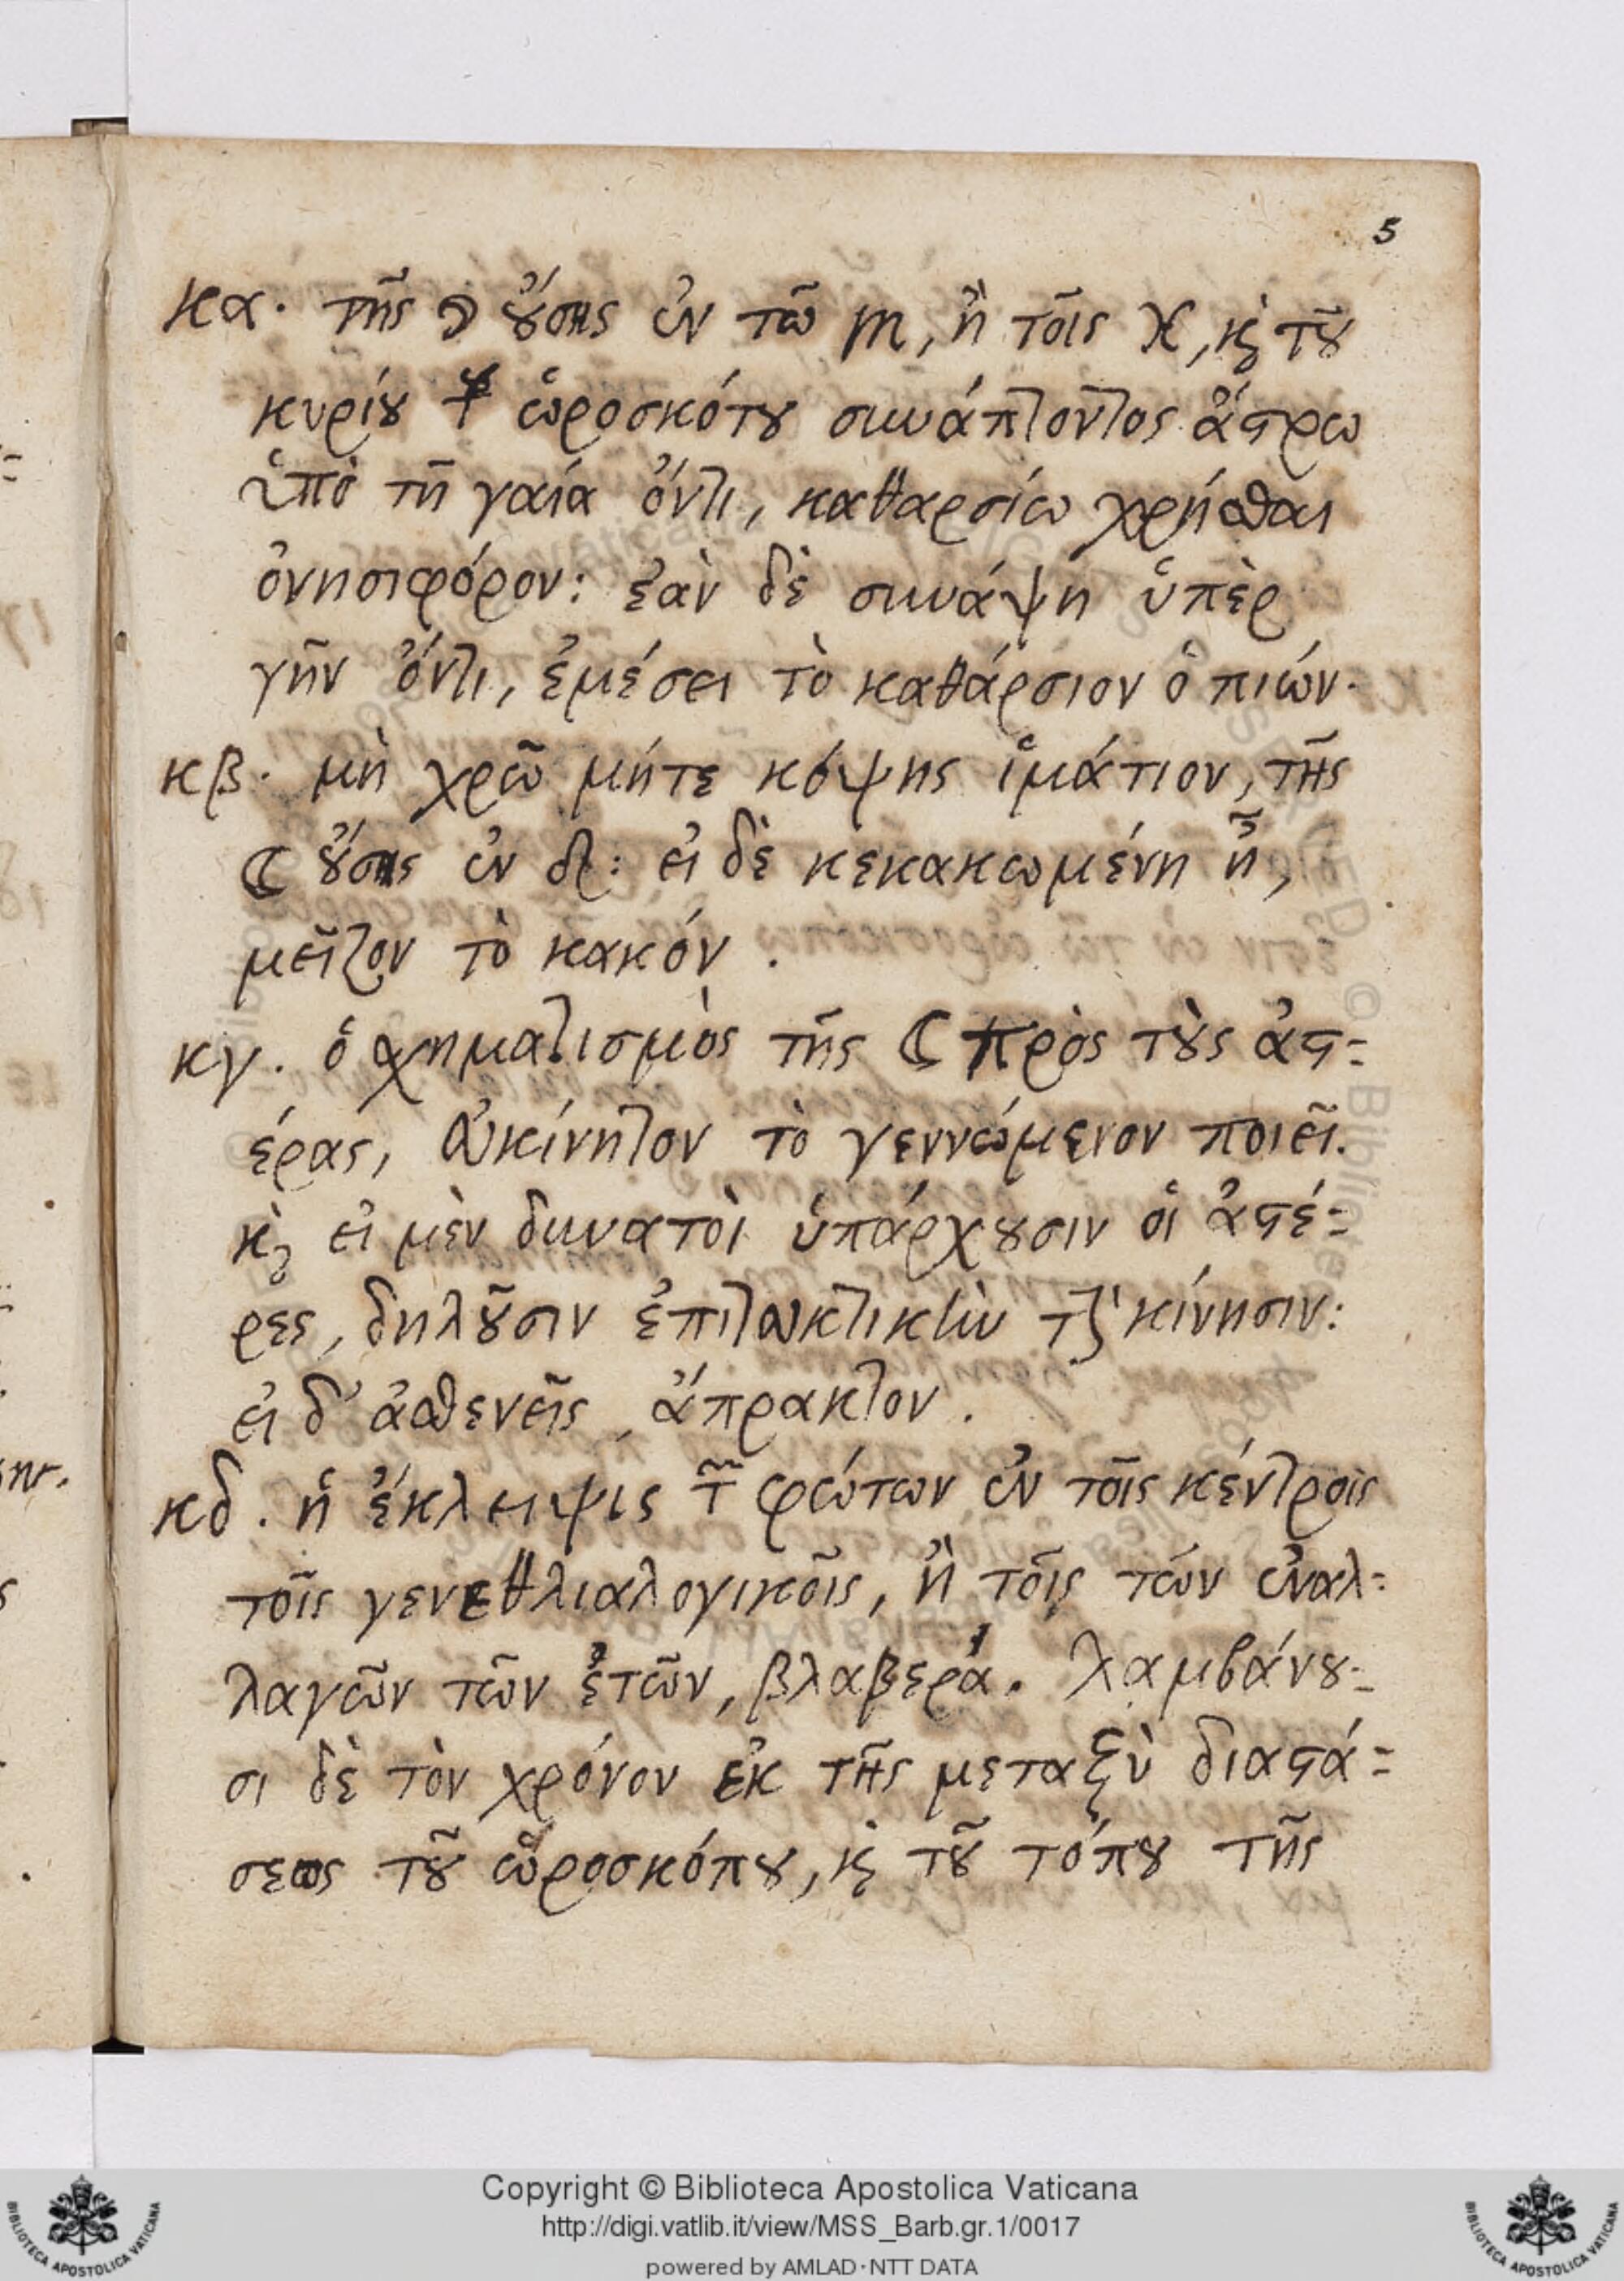 5
κα. τῆς ☽ ȣ̓́σης ἐν τῶ ♏, ἢ τοῖς ♓, κ̀ τȣ͂
κυρίȣ τȣ͂ ὡροσκότȣ συνάπτοντος ἄστρω
ὑπὸ τῆ γαία ὄντι, καθαρσίω χρῆσθαι
ὀνησιφόρον: ἐὰν δὲ συνάψη ὑπὲρ
γῆν ὄντι, ἐμέσει τὸ καθάρσιον ὁ πιών.
κβ. μὴ χρῶ μήτε κόψης ἱμάτιον, τῆς
☾ ȣ̓́σης ἐν ♌: εἰ δὲ κεκακωμένη ἦ,
μεῖζον τὸ κακόν.
κγ. ὁ σχηματισμὸς τῆς ☾ πρὸς τȣ̀ς ἀστ=
έρας, εὐκίνητον τὸ γεννώμενον ποιεῖ.
κ̀ εἰ μὲν δυνατοὶ ὑπάρχȣσιν οἱ ἀστέ=
ρες, δηλȣ͂σιν ἐπιτευκτικὴν τὴν κίνησιν:
εἰ δ' ἀσθενεῖς, ἄπρακτον.
κδ. ἡ ἔκλειψις τ͂ φώτων ἐν τοῖς κέντροις
τοῖς γενεθλιαλογικοῖς, ἢ τοῖς τῶν ἐναλ=
λαγῶν τῶν ἐτῶν, βλαβερά. λαμβάνȣ=
σι δὲ τὸν χρόνον ἐκ τῆς μεταξὺ διαστά=
σεως τȣ͂ ὡροσκόπȣ, κ̀ τȣ͂ τόπȣ τῆς
Copyright © Biblioteca Apostolica Vaticana
http://digi.vatlib.it/view/MSS_Barb.gr.1/0017
powered by AMLAD·NTT DATA
BIBLIOTECA APOSTOLICA VATICANA
BIBLIOTECA APOSTOLICA VATICANA